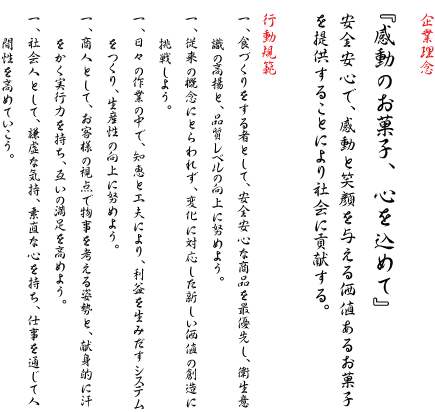 企業理念
『感動のお菓子、心を込めて』
安全安心で、感動と笑顔を与える価値あるお菓子
を提供することにより社会に貢献する。
行動規範
一、食づくりをする者として、安全安心な商品を最優先し、衛生意
識の高揚と、品質レベルの向上に努めよう。
一、従来の概念にとらわれず、変化に対応した新しい価値の創造に
挑戦しよう。
一、日々の作業の中で、知恵と工夫により、利益を生みだすシステム
をつくり、生産性の向上に努めよう。
一、商人として、お客様の視点で物事を考える姿勢と、献身的に汗
をかく実行力を持ち、互いの満足を高めよう。
一、社会人として、謙虚な気持、素直な心を持ち、仕事を通じて人
間性を高めていこう。